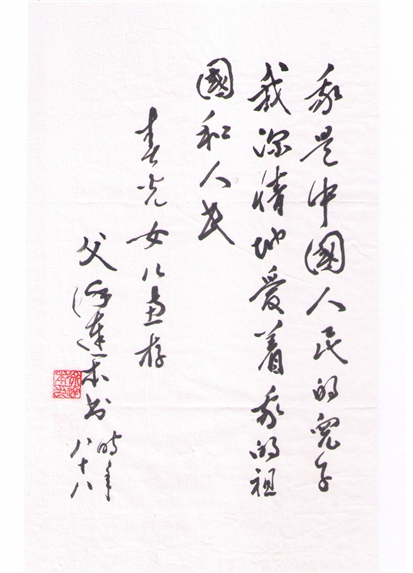 我是中國人民的兒子
我深情地愛着我的祖
國和人民
光女儿惠存
父徐達本书
时年
八十八